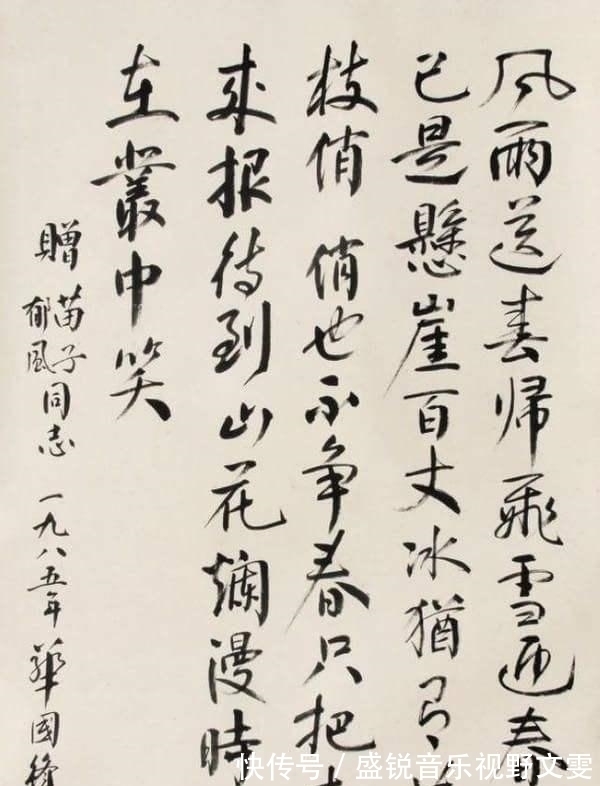 风雨送春帰飛雪迎春
已是懸崖百丈冰猶有
枝俏 俏也不争春只把
来报待到山花爛漫時
在叢中笑
贈苗子郁風同志 一九八五年 華國鋒
快传号 / 盛锐音乐视野文雯